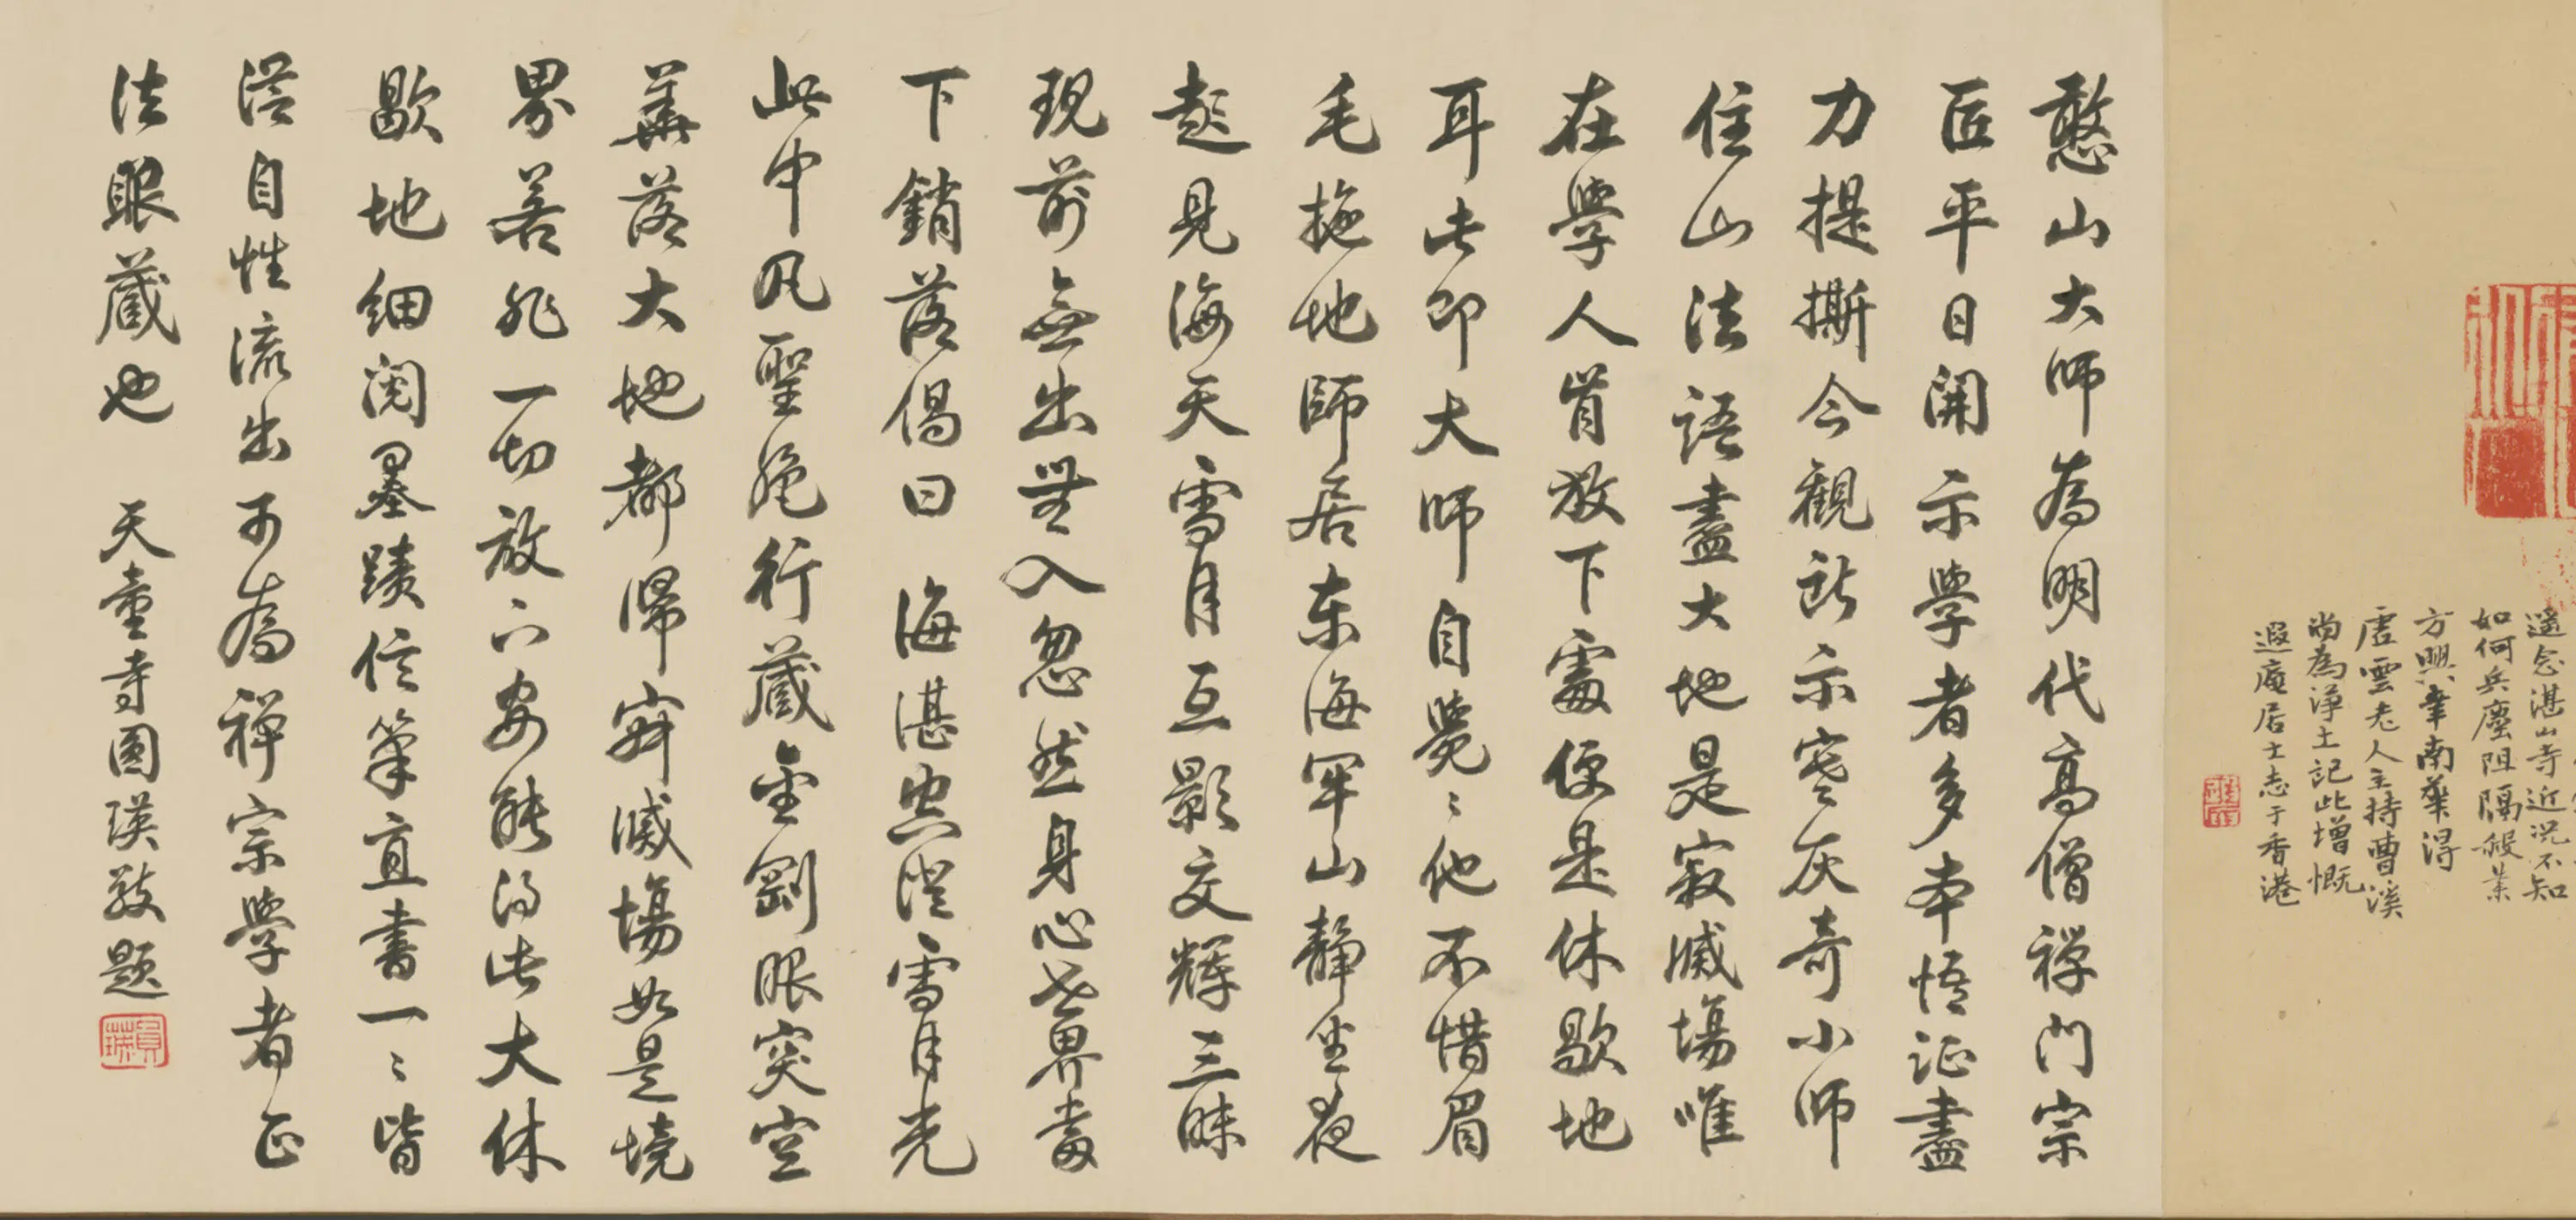 遥念湛山寺近況不知
如何兵塵阻隔殺業
方興幸南華得
虛雲老人主持曹溪
尚為淨土記此增慨
遐庵居士志于香港
憨山大师為明代高僧禅门宗
匠平日開示學者多本悟证盡
力提撕今觀所示寒灰奇小师
住山法語盡大地是寂滅場唯
在學人肯放下處便是休歇地
耳此即大师自覺〻他不惜眉
毛拖地師居东海牢山静坐夜
起見海天雪月互影交輝三昧
現前無出無入忽然身心世界當
下銷落偈曰 海湛空澄雪月光
此中凡聖絶行藏金剛眼突空
華落大地都歸寂滅場如是境
界若非一切放下安能得此大休
歇地细閱墨蹟信筆直書一〻皆
從自性流出可為禅宗學者正
法眼藏也 天童寺圓瑛敬題
圓瑛